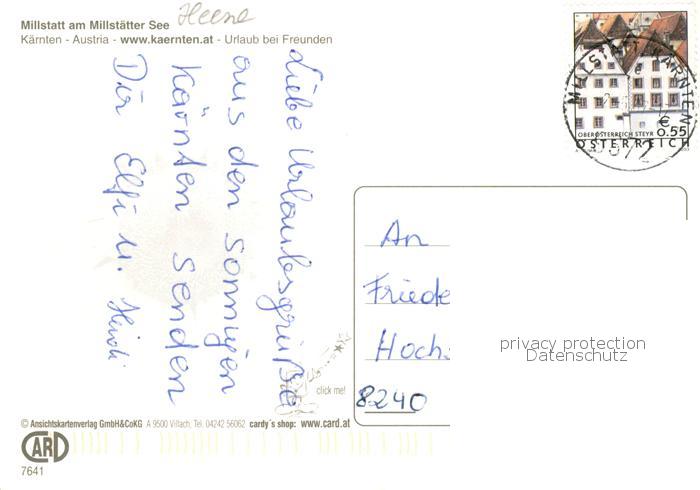 Millstatt am Millstätter See
Kärnten - Austria - www.kaernten.at - Urlaub bei Freunden
Liebe Urlaubsgrüße
aus den sonnigen
Kärnten senden
Dir Elfi u. Heidi
MILLSTATT KÄRNTEN
9872
€ 0.55
OBERÖSTERREICH STEYR
ÖSTERREICH
An
Friede
Hochs
8240
privacy protection
Datenschutz
click me!
© Ansichtskartenverlag GmbH&CoKG A 9500 Villach, Tel. 04242 56062 cardy´s shop: www.card.at
CARD
7641